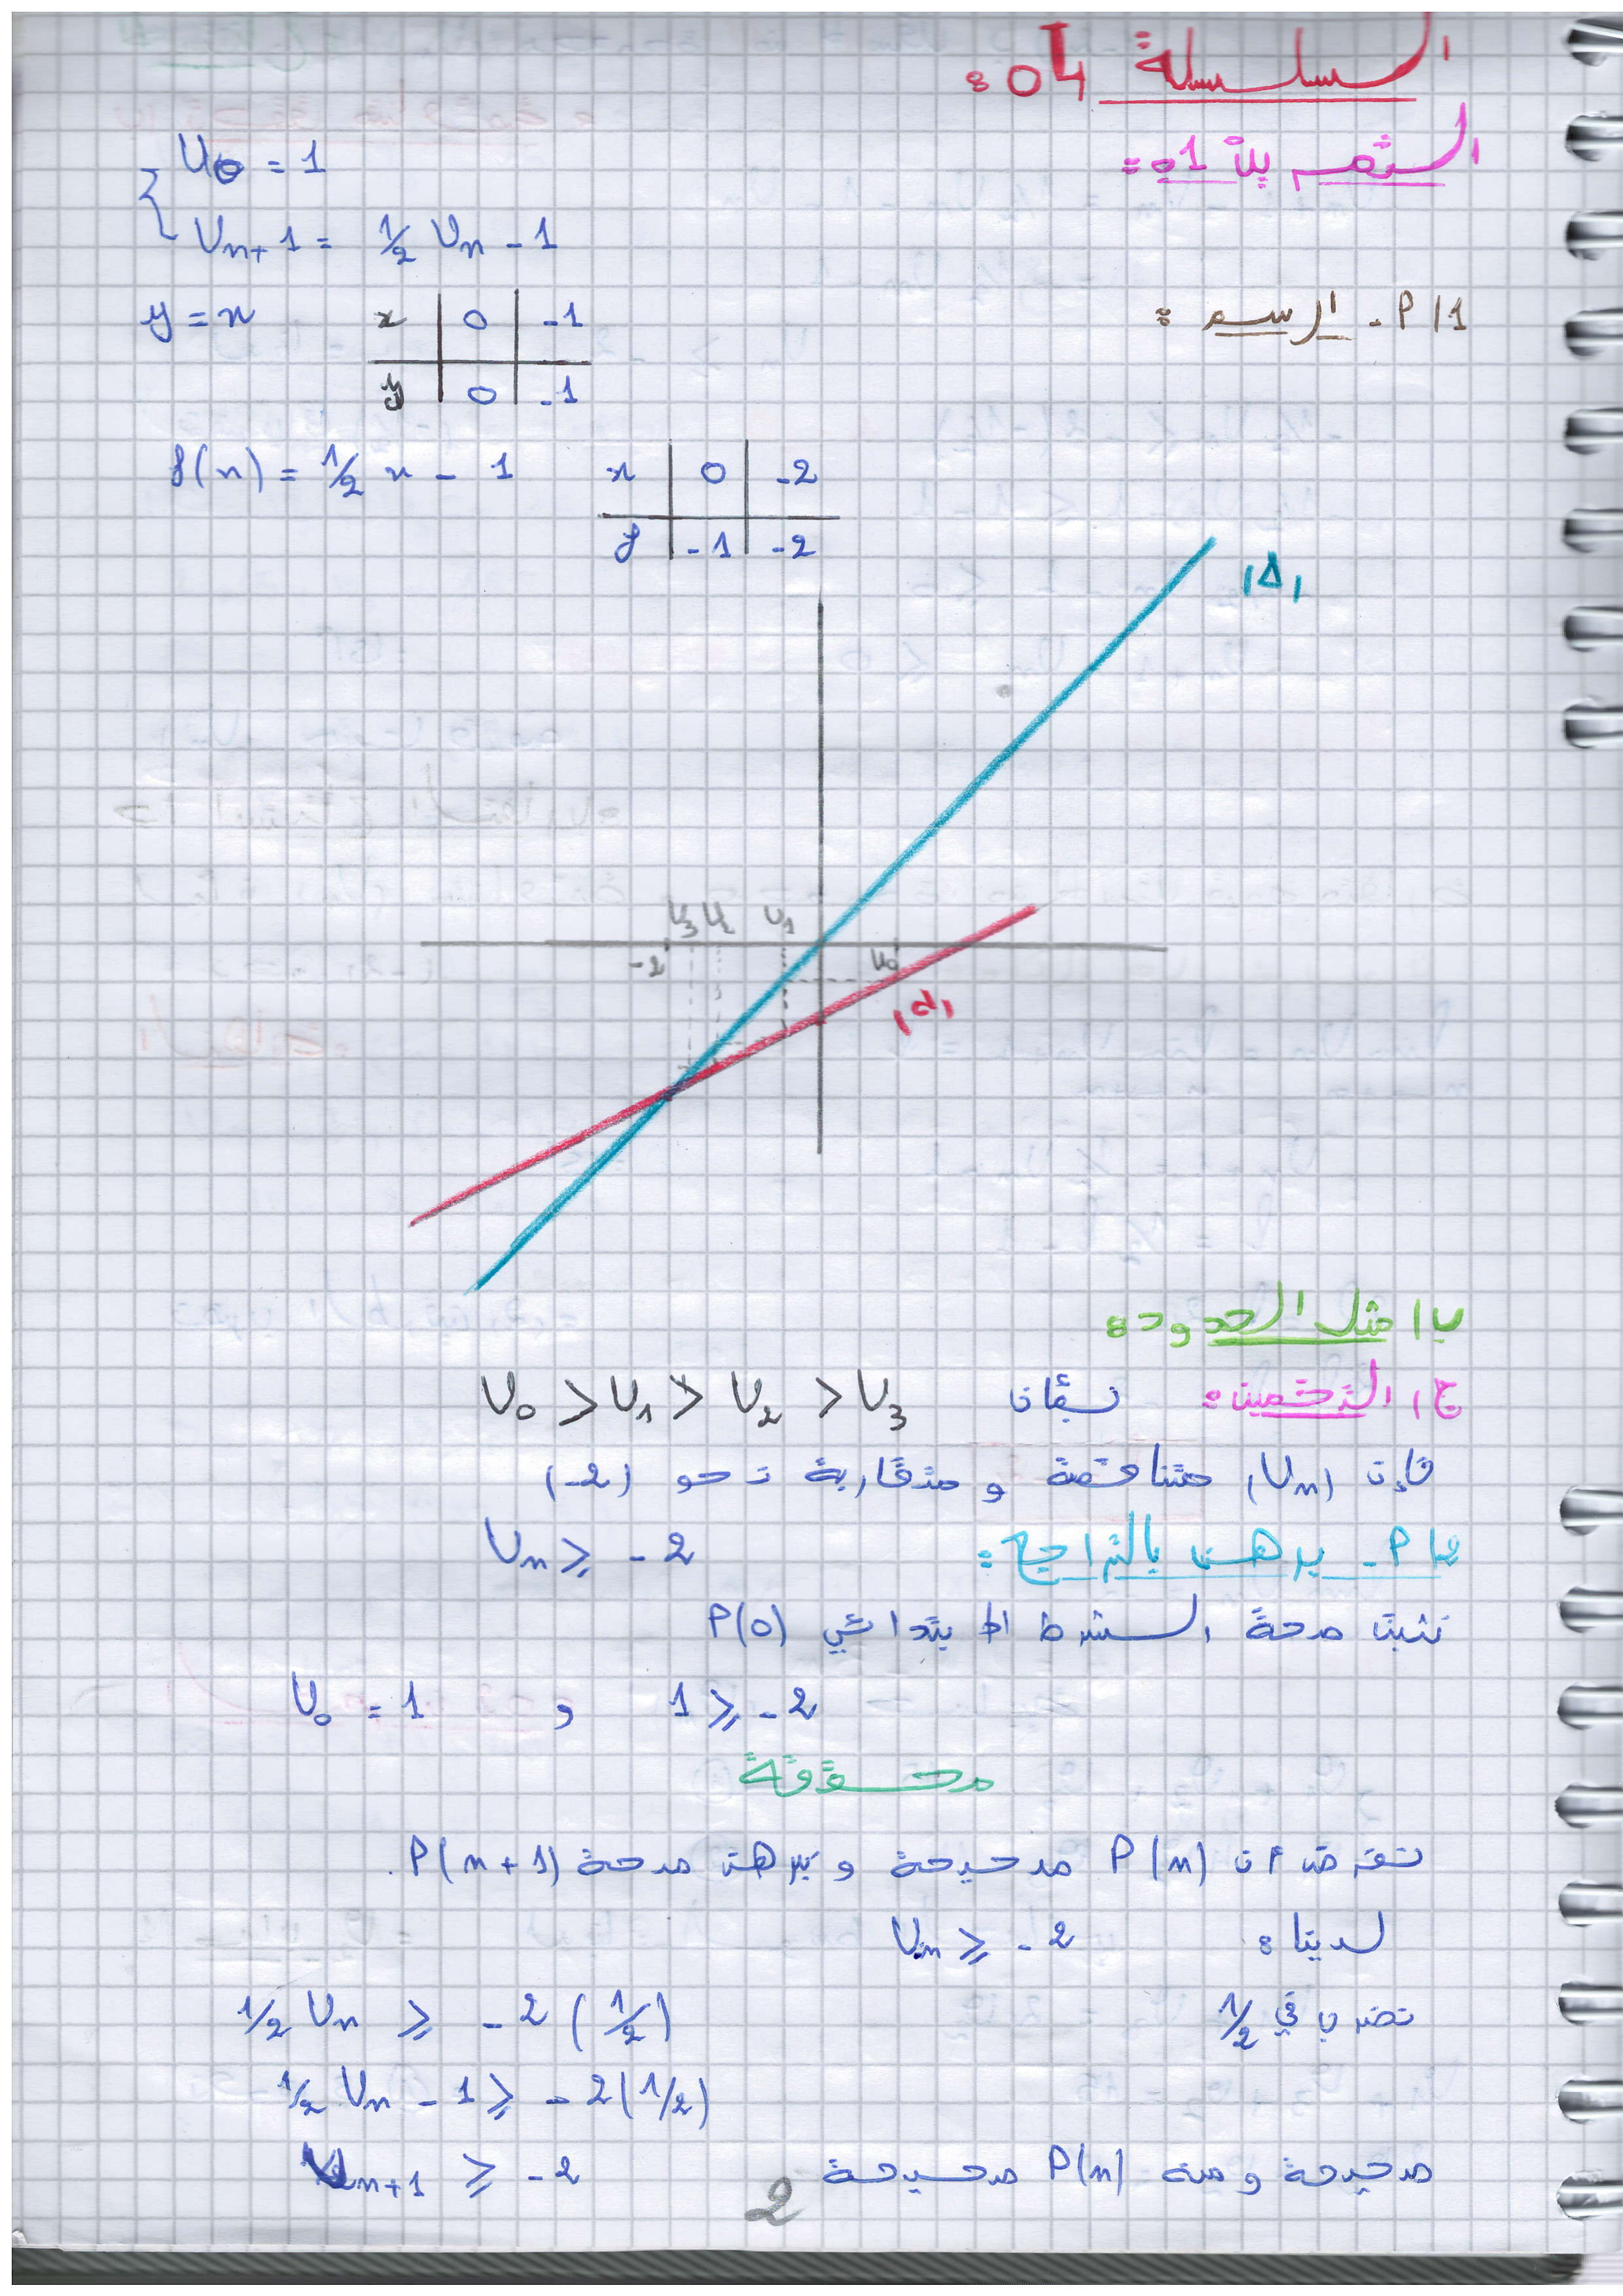 السلسلة 04:
التمرين 01:
U0 = 1
Un+1 = 1/2 Un - 1
1/ P- الرسم:
y = x
x | 0 | -1
y | 0 | -1
f(x) = 1/2 x - 1
x | 0 | -2
y | -1 | -2
(Δ)
U3 U2 U1
-2 U0
(d)
ب/ مثل الحدود:
ج/ التخمين: نسبمان U0 > U1 > U2 > U3
فإن (Un) متناقصة و متقاربة نحو (-2)
2/ P- برهن بالتراجع: Un ⩾ -2
نثبت صحة الشرط الابتدائي P(0)
U0 = 1 و 1 ⩾ -2
محققة
نفرض أن P(n) صحيحة و نبرهن صحة P(n+1).
لدينا: Un ⩾ -2
نضرب في 1/2 1/2 Un ⩾ -2 (1/2)
1/2 Un - 1 ⩾ -2 (1/2)
Un+1 ⩾ -2 صحيحة ومنه P(n) صحيحة
2